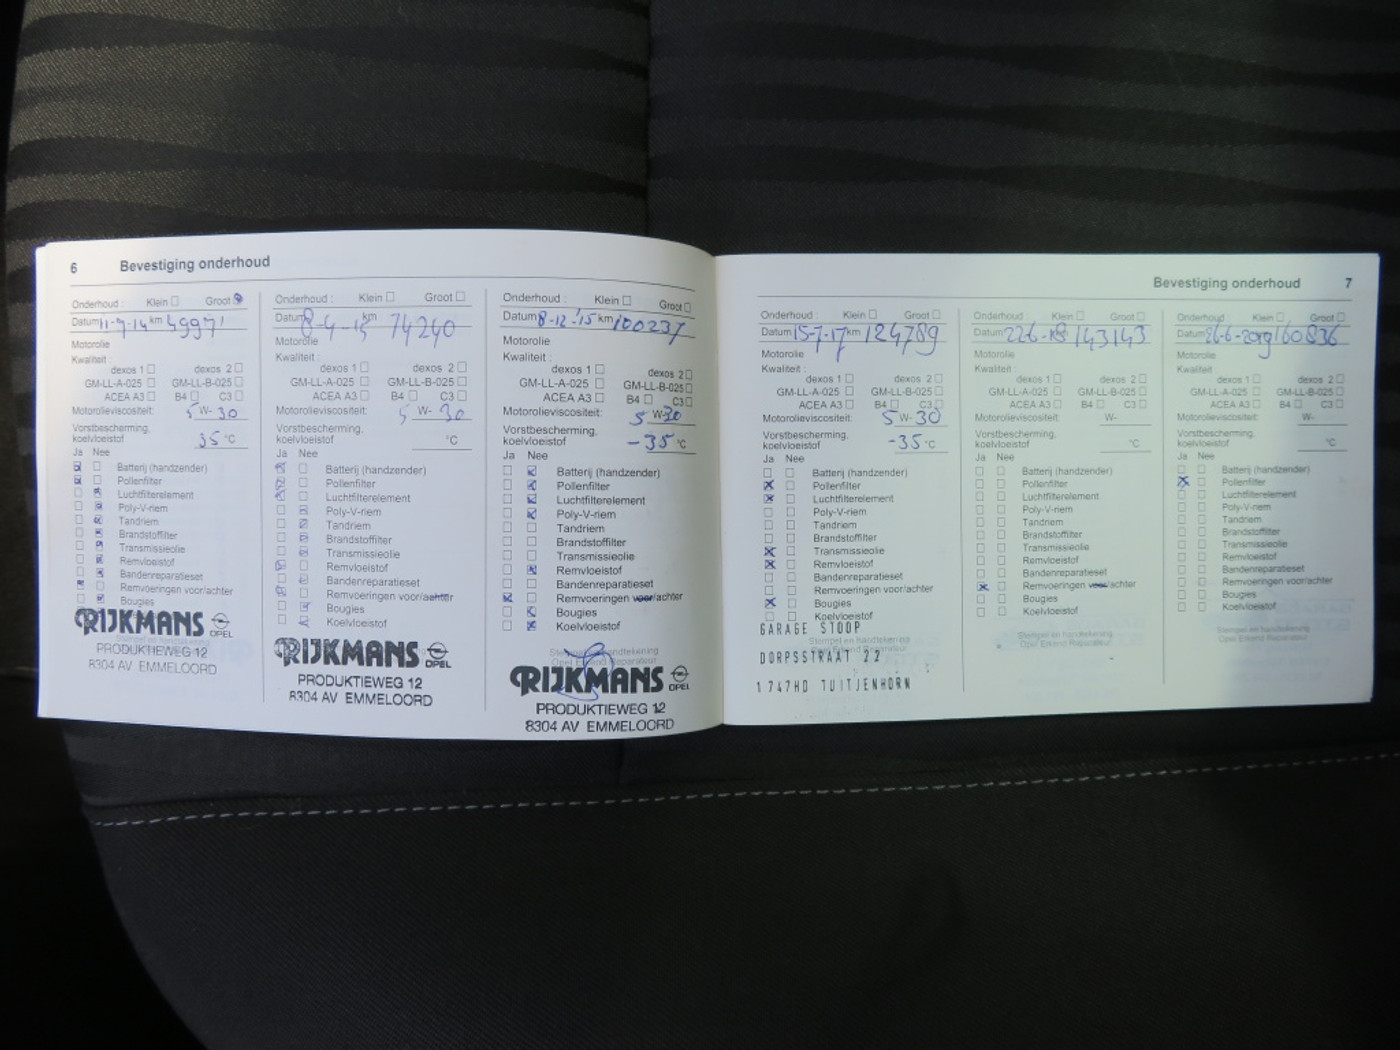 6 Bevestiging onderhoud
Onderhoud : Klein Groot
Datum 11-7-14 km 49971
Motorolie
Kwaliteit :
dexos 1 dexos 2
GM-LL-A-025 GM-LL-B-025
ACEA A3 B4 C3
Motorolieviscositeit: 5 W- 30
Vorstbescherming,
koelvloeistof 35 °C
Ja Nee
Batterij (handzender)
Pollenfilter
Luchtfilterelement
Poly-V-riem
Tandriem
Brandstoffilter
Transmissieolie
Remvloeistof
Bandenreparatieset
Remvoeringen voor/achter
Bougies
RIJKMANS OPEL
Stempel en handtekening
PRODUKTIEWEG 12
8304 AV EMMELOORD
Onderhoud : Klein Groot
Datum 8-4-15 km 74240
Motorolie
Kwaliteit :
dexos 1 dexos 2
GM-LL-A-025 GM-LL-B-025
ACEA A3 B4 C3
Motorolieviscositeit: 5 W- 30
Vorstbescherming,
koelvloeistof °C
Ja Nee
Batterij (handzender)
Pollenfilter
Luchtfilterelement
Poly-V-riem
Tandriem
Brandstoffilter
Transmissieolie
Remvloeistof
Bandenreparatieset
Remvoeringen voor/achter
Bougies
Koelvloeistof
RIJKMANS OPEL
PRODUKTIEWEG 12
8304 AV EMMELOORD
Onderhoud : Klein Groot
Datum 8-12-'15 km 100237
Motorolie
Kwaliteit :
dexos 1 dexos 2
GM-LL-A-025 GM-LL-B-025
ACEA A3 B4 C3
Motorolieviscositeit: 5 W-30
Vorstbescherming,
koelvloeistof -35 °C
Ja Nee
Batterij (handzender)
Pollenfilter
Luchtfilterelement
Poly-V-riem
Tandriem
Brandstoffilter
Transmissieolie
Remvloeistof
Bandenreparatieset
Remvoeringen voor/achter
Bougies
Koelvloeistof
Stempel en handtekening
Opel Erkend Reparateur
RIJKMANS OPEL
PRODUKTIEWEG 12
8304 AV EMMELOORD
Bevestiging onderhoud 7
Onderhoud : Klein Groot
Datum 15-7-17 km 124789
Motorolie
Kwaliteit :
dexos 1 dexos 2
GM-LL-A-025 GM-LL-B-025
ACEA A3 B4 C3
Motorolieviscositeit: 5 W-30
Vorstbescherming,
koelvloeistof -35 °C
Ja Nee
Batterij (handzender)
Pollenfilter
Luchtfilterelement
Poly-V-riem
Tandriem
Brandstoffilter
Transmissieolie
Remvloeistof
Bandenreparatieset
Remvoeringen voor/achter
Bougies
Koelvloeistof
GARAGE STOOP
Stempel en handtekening
Opel Erkend Reparateur
DORPSSTRAAT 22
1747HD TUITJENHORN
Onderhoud : Klein Groot
Datum 22-6-18 143143
Motorolie
Kwaliteit :
dexos 1 dexos 2
GM-LL-A-025 GM-LL-B-025
ACEA A3 B4 C3
Motorolieviscositeit: W-
Vorstbescherming,
koelvloeistof °C
Ja Nee
Batterij (handzender)
Pollenfilter
Luchtfilterelement
Poly-V-riem
Tandriem
Brandstoffilter
Transmissieolie
Remvloeistof
Bandenreparatieset
Remvoeringen voor/achter
Bougies
Koelvloeistof
Stempel en handtekening
Opel Erkend Reparateur
Onderhoud : Klein Groot
Datum 26-6-2019 160836
Motorolie
Kwaliteit :
dexos 1 dexos 2
GM-LL-A-025 GM-LL-B-025
ACEA A3 B4 C3
Motorolieviscositeit: W-
Vorstbescherming,
koelvloeistof °C
Ja Nee
Batterij (handzender)
Pollenfilter
Luchtfilterelement
Poly-V-riem
Tandriem
Brandstoffilter
Transmissieolie
Remvloeistof
Bandenreparatieset
Remvoeringen voor/achter
Bougies
Koelvloeistof
Stempel en handtekening
Opel Erkend Reparateur